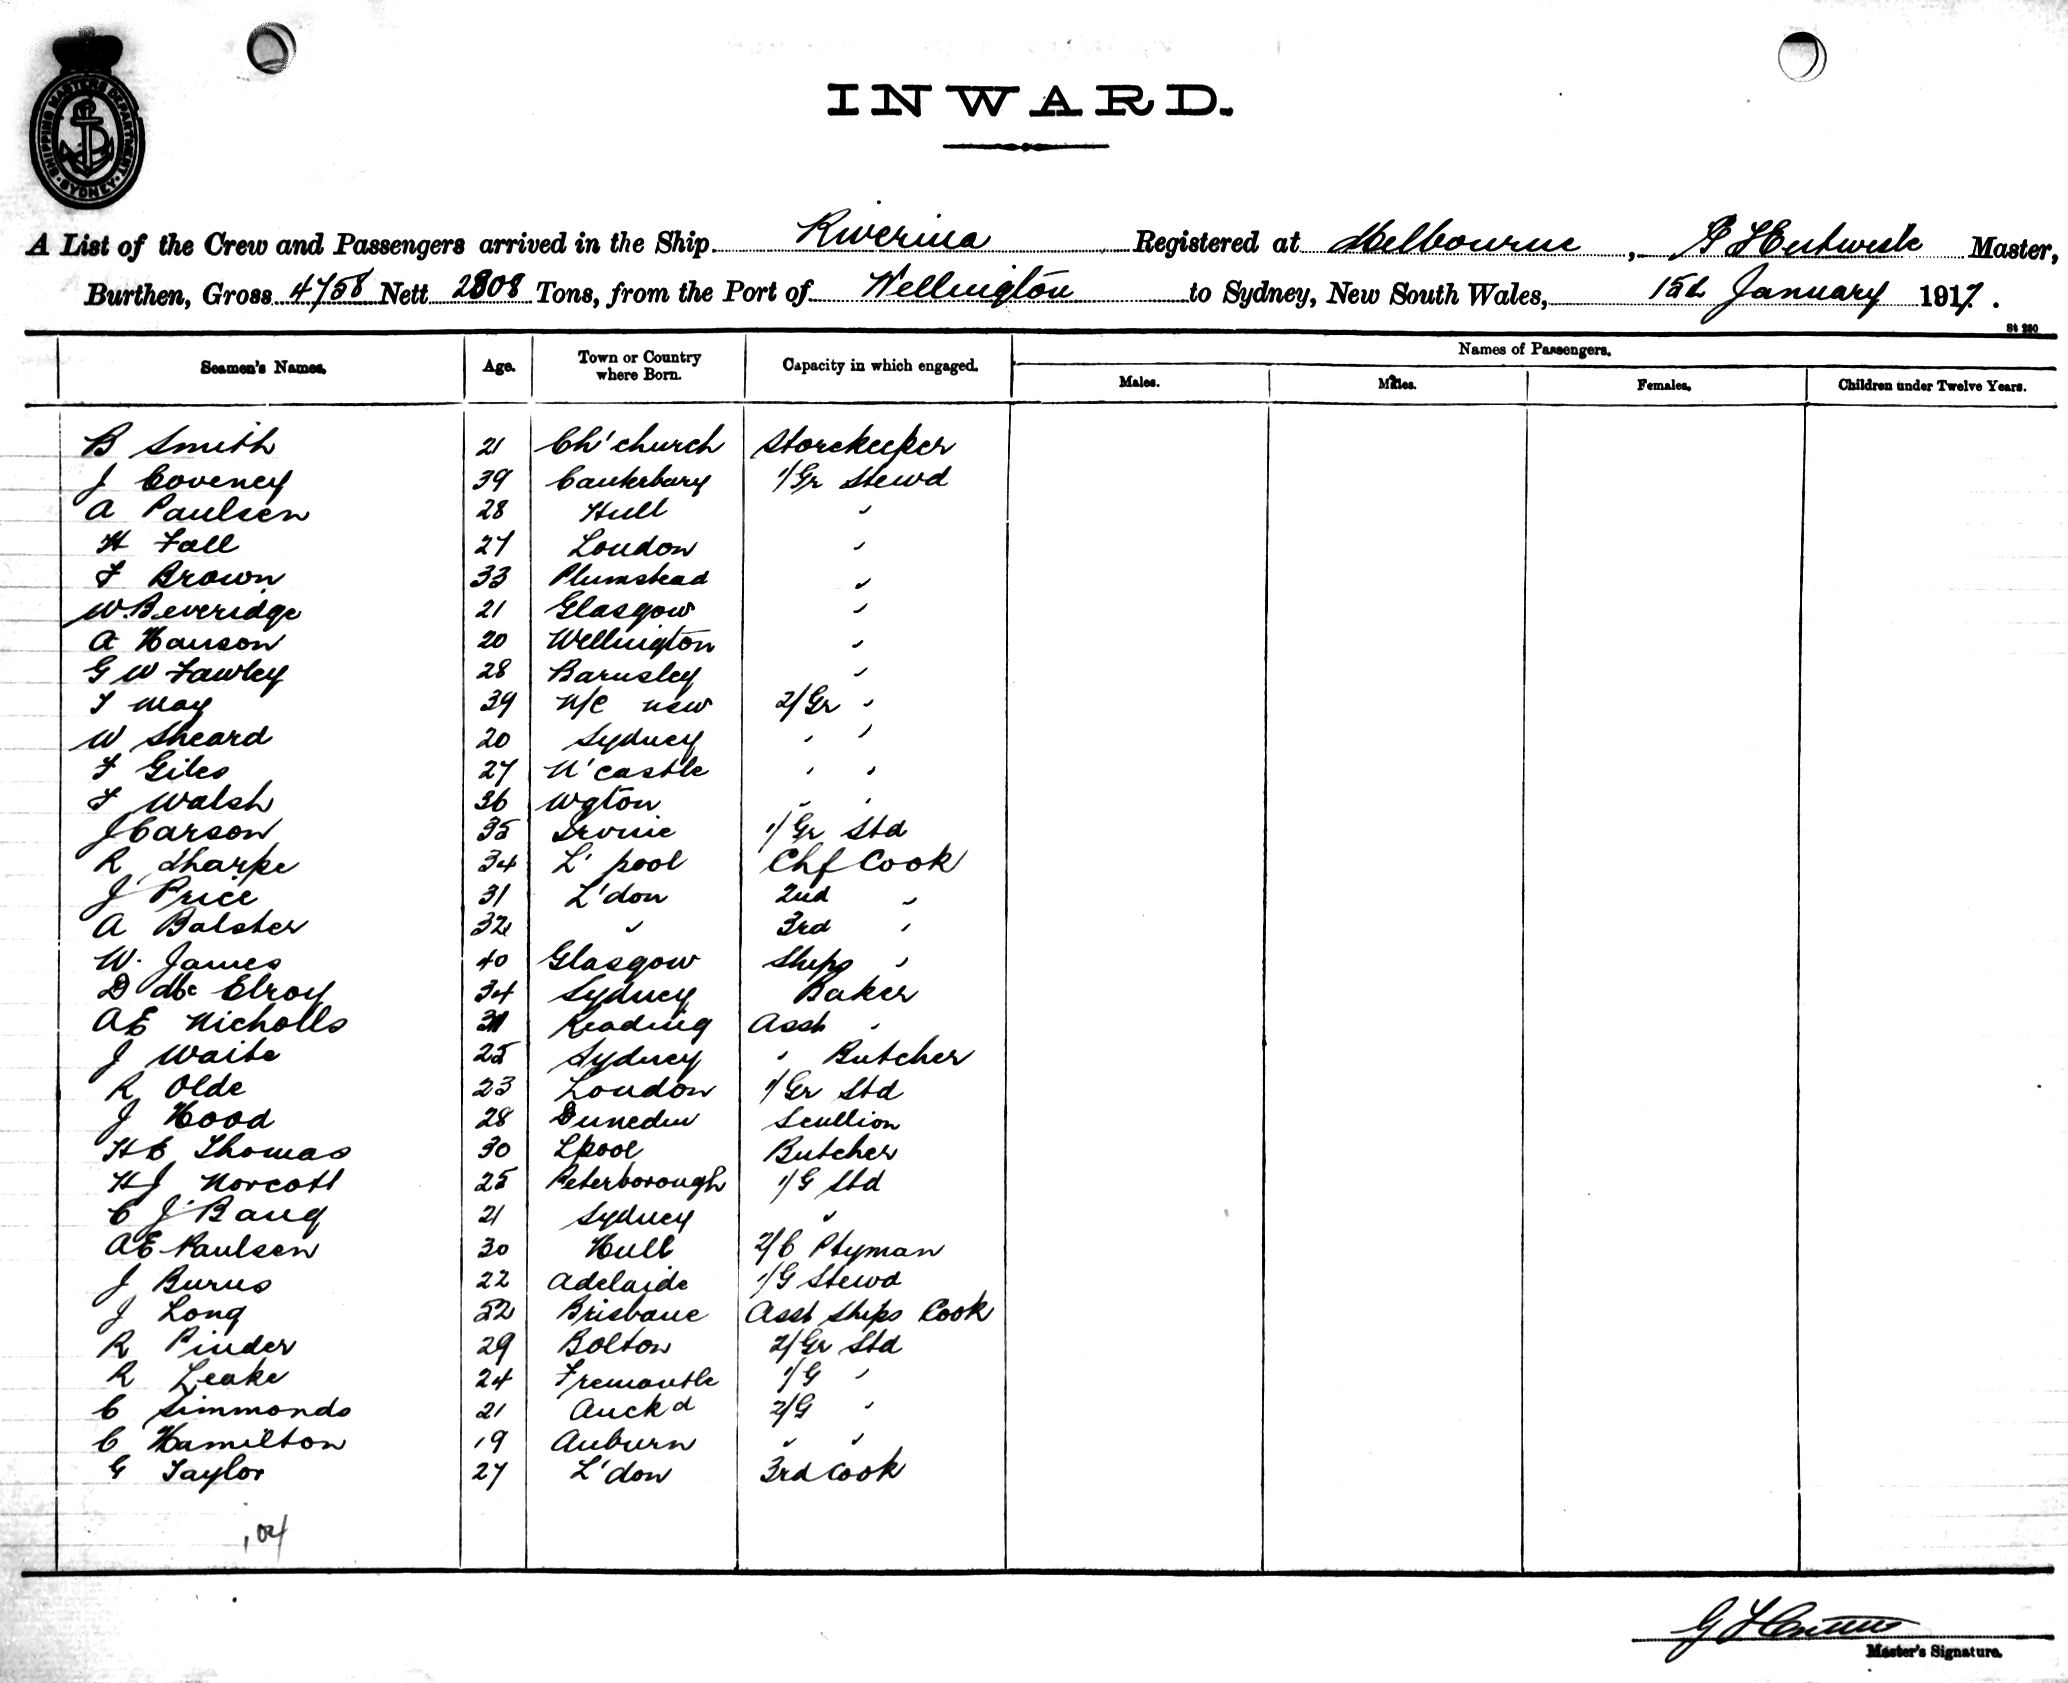 SHIPPING MASTERS DEPARTMENT SYDNEY
INWARD.
A List of the Crew and Passengers arrived in the Ship Riverina Registered at Melbourne, Master,
Burthen, Gross 4758 Nett 2808 Tons, from the Port of Wellington to Sydney, New South Wales, 15th January 1917.
St 280
Seamen's Names. Age. Town or Country where Born. Capacity in which engaged. Names of Passengers.
Males. Males. Females. Children under Twelve Years.
B Smith 21 Ch'church Storekeeper
J Coveney 39 Canterbury 1/Gr Stewd
A Paulsen 28 Hull "
H Fall 27 London "
F Brown 33 Plumstead "
W. Beveridge 21 Glasgow "
A Hanson 20 Wellington "
G W Fawley 28 Barnsley "
T May 39 N/C NSW 2/Gr "
W Sheard 20 Sydney " "
F Giles 27 N'castle " "
F Walsh 36 Wgton " "
J Carson 35 Irvine 1/Gr Std
R Sharpe 34 L'pool Chf Cook
J Price 31 L'don 2nd "
A Balster 32 " 3rd "
W. James 40 Glasgow Ships "
D Mc Elroy 34 Sydney Baker
AE Nicholls 31 Reading Asst "
J Waite 25 Sydney " Butcher
R Olde 23 London 1/Gr Std
J Hood 28 Dunedin Scullion
HE Thomas 30 Lpool Butcher
HJ Norcott 25 Peterborough 1/G Std
C J Bang 21 Sydney "
AE Paulsen 30 Hull 2/C Ptyman
J Burns 22 Adelaide 1/G Stewd
J Long 52 Brisbane Asst Ships Cook
R Pinder 29 Bolton 2/Gr Std
R Leake 24 Fremantle 1/G "
C Simmonds 21 Auckd 2/G "
C Hamilton 19 Auburn " "
G Taylor 27 L'don 3rd Cook
104
Master's Signature.